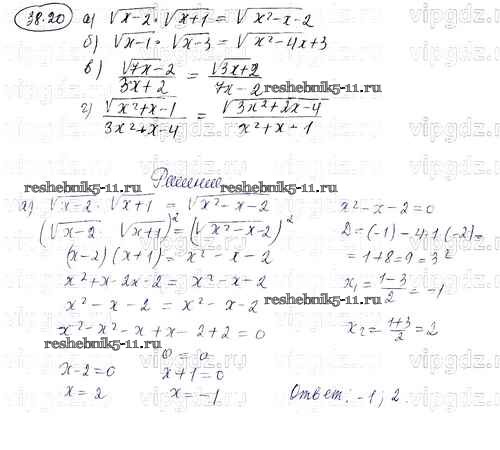 38.20 а) √x-2 · √x+1 = √x²-x-2
б) √x-1 · √x-3 = √x²-4x+3
в) √7x-2 / 3x+2 = √3x+2 / 7x-2
г) √x²+x-1 / 3x²+x-4 = √3x²+2x-4 / x²+x+1
reshebnik5-11.ru
reshebnik5-11.ru
Решение
reshebnik5-11.ru
reshebnik5-11.ru
а) √x-2 · √x+1 = √x²-x-2
(√x-2 √x+1)² = (√x²-x-2)²
(x-2)(x+1) = x²-x-2
x²+x-2x-2 = x²-x-2
x²-x-2 = x²-x-2
x²-x²-x+x-2+2=0
0=0
x-2=0 x+1=0
x=2 x=-1
x²-x-2=0
D=(-1)-4·1(-2)=
=1+8=9=3²
x₁=1-3/2=-1
x₂=1+3/2=2
Ответ: -1; 2.
reshebnik5-11.ru
reshebnik5-11.ru
vipgdz.ru